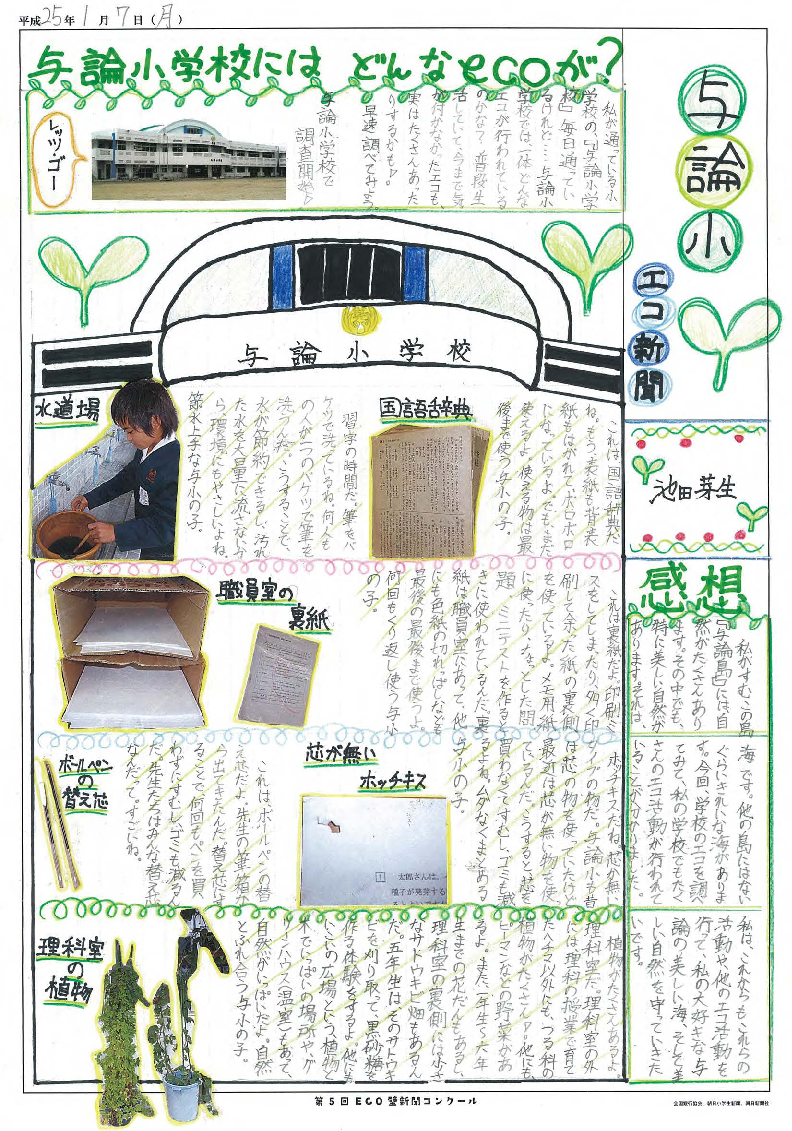 平成25年1月7日(月)
与論小
エコ新聞
池田芽生
与論小学校にはどんなecoが?
私が通っている小
学校の、『与論小学
校』毎日通ってい
るけれど…与論小
学校では一体どんな
エコが行われている
のかな?普段生
活していて、今まで気
が付かなかったエコも、
実はたくさんあった
りするかも♪
早速調べてみよう。
与論小学校で
調査開始♪
レッツ・ゴー
与論小学校
国語辞典
これは国語辞典だ
ね。もう表紙と背表
紙もはがれてボロボロ
になっているよ。でも、まだ
使えるよ。使える物は最
後まで使う与小の子。
水道場
習字の時間だ。筆をバ
ケツで洗っているね。何人も
の人が一つのバケツで筆を
洗うんだ。こうすることで、
水が節約できるし、汚れ
た水を大量に流さないか
ら環境にもやさしいよね。
節水上手な与小の子。
職員室の
裏紙
これは裏紙だよ。印刷ミ
スをしてしまったり、多く印
刷して余った紙の裏側
を使っているよ。メモ用紙
に使ったり、ちょっとした問
題、ミニテストを作ると
きに使われているんだ。裏
紙は職員室にあって、他
にも色紙の切れはしなども
最後の最後まで使うよ。
何回もくり返し使う与小
の子。
芯が無い
ホッチキス
ホッチキスだね。芯が無
いタイプの物だ。与論小も昔
は芯の物を使っていたけど、
最近は芯が無い物を使っ
ているんだ。こうすると芯を
買わなくてすむし、ゴミも減
るよね。ムダなくまとめる
与小の子。
ボールペン
の
替え芯
これは、ボールペンの替
え芯だよ。先生の筆箱な
ら出てきたんだ。替え芯にす
ることで何回もペンを買
わずにすむし、ゴミも減るん
だ。先生たちはみんな替え芯
なんだって。すごいね。
理科室
の
植物
植物がたくさんあるよ。
理科室だ。理科室の外
には理科の授業で育て
たヘチマ以外にも、つる科の
植物がたくさん♪。他にも、
ピーマンなどの野菜があ
るよ。また、一年生〜六年
生までの花だんもあるし、
理科室の裏側には小さ
なサトウキビ畑もあるん
だ。五年生はそのサトウキ
ビを刈り取って、黒砂糖を
作る体験をするよ。他にも
いこいの広場という植物と
木でいっぱいの場所や、グ
リーンハウス(温室)もあって、
自然がいっぱいだよ。自然
とふれ合う与小の子。
感想
私がすむこの島
『与論島』には自
然がたくさんあり
ます。その中でも、
特に美しい自然が
あります。それは、
海です。他の島にはない
ぐらいきれいな海がありま
す。今回、学校のエコを調べ
てみて、私の学校でもたく
さんのエコ活動が行われて
いることが分かりました。
私は、これからもこれらの
活動や他のエコ活動を
行って、私の大好きな与
論の美しい海、そして美
しい自然を守っていきた
いです。
太郎さんは、
種子が発芽する
第5回ECO壁新聞コンクール
全国銀行協会、朝日小学生新聞、朝日新聞社